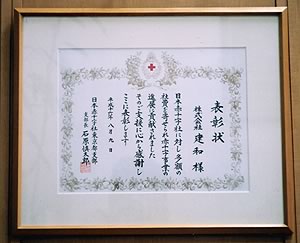 表彰状
株式会社 建和 様
日本赤十字社に対し多額の
社費を寄せられ赤十字事業の
進展に貢献されました
そのご支援に心から感謝し
ここに表彰します
八月九日
日本赤十字社東京都支部
支部長 石原慎太郎